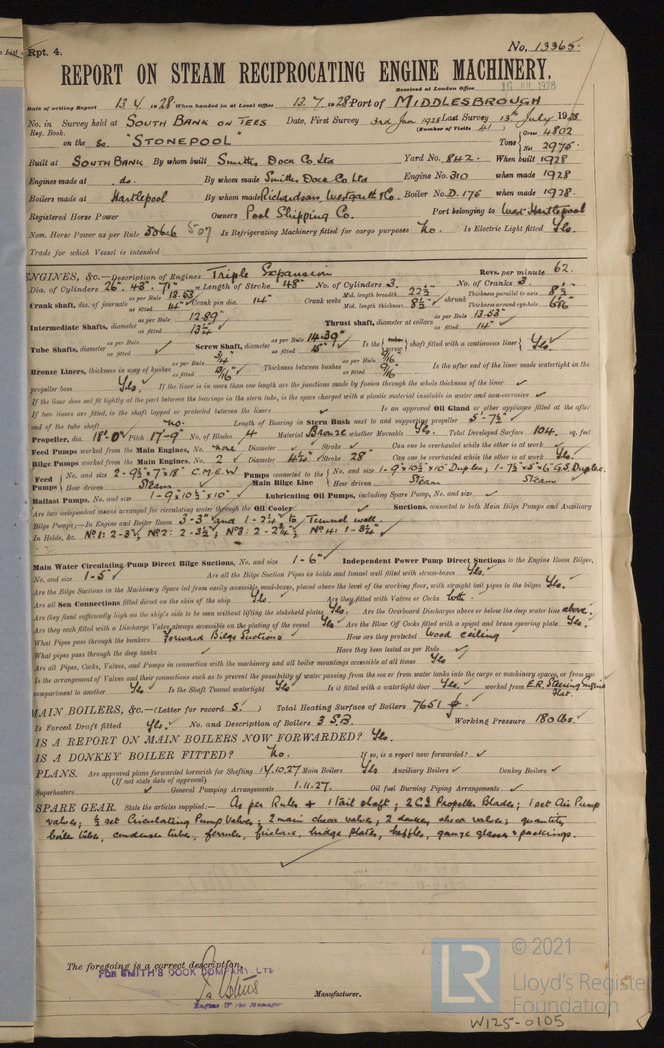 Rpt. 4.
No. 13365.
REPORT ON STEAM RECIPROCATING ENGINE MACHINERY.
Received at London Office 16 JUL 1928
Date of writing Report 13 7 1928 When handed in at Local Office 13.7.1928 Port of MIDDLESBROUGH
No. in Survey held at SOUTH BANK ON TEES Date, First Survey 3rd Jan 1928 Last Survey 13th July 1928
Reg. Book. (Number of Visits 41)
on the Sc. "STONEPOOL" Tons Gross 4802 Net 2975.
Built at SOUTH BANK By whom built Smiths Dock Co Ltd Yard No. 842. When built 1928
Engines made at do. By whom made Smiths Dock Co Ltd Engine No. 310 when made 1928
Boilers made at Hartlepool By whom made Richardsons, Westgarth & Co. Boiler No. D. 175 when made 1928.
Registered Horse Power Owners Pool Shipping Co. Port belonging to West Hartlepool
Nom. Horse Power as per Rule 507 Is Refrigerating Machinery fitted for cargo purposes No. Is Electric Light fitted Yes.
Trade for which Vessel is intended
ENGINES, &c.—Description of Engines Triple Expansion Revs. per minute 62.
Dia. of Cylinders 26" 43" 71" Length of Stroke 48" No. of Cylinders 3. No. of Cranks 3.
Crank shaft, dia. of journals as per Rule 13.53 as fitted 14" Crank pin dia. 14" Crank webs Mid. length breadth 22½" Mid. length thickness 8½" shrunk Thickness parallel to axis 8½" Thickness around eye-hole
Intermediate Shafts, diameter as per Rule 12.89" as fitted 13¼" Thrust shaft, diameter at collars as per Rule 13.53" as fitted 14"
Tube Shafts, diameter as per Rule as fitted Screw Shaft, diameter as per Rule 14.39" as fitted 15" Is the screw shaft fitted with a continuous liner Yes.
Bronze Liners, thickness in way of bushes as per Rule 3/4" as fitted 13/16" Thickness between bushes as per Rule 9/16 as fitted 9/16" Is the after end of the liner made watertight in the
propeller boss Yes. If the liner is in more than one length are the junctions made by fusion through the whole thickness of the liner
If the liner does not fit tightly at the part between the bearings in the stern tube, is the space charged with a plastic material insoluble in water and non-corrosive
If two liners are fitted, is the shaft lapped or protected between the liners Is an approved Oil Gland or other appliance fitted at the after
end of the tube shaft No. Length of Bearing in Stern Bush next to and supporting propeller 5'-7½"
Propeller, dia. 18'-0" Pitch 17'-9" No. of Blades 4 Material Bronze whether Moveable Yes. Total Developed Surface 104. sq. feet
Feed Pumps worked from the Main Engines, No. none Diameter Stroke Can one be overhauled while the other is at work
Bilge Pumps worked from the Main Engines, No. 2 Diameter 4½" Stroke 28" Can one be overhauled while the other is at work Yes.
Feed Pumps No. and size 2 - 9½" x 7" x 18" C.M.E.W Pumps connected to the Main Bilge Line No. and size 1-9" x 10½" x 10" Duplex, 1-7½" x 5" x 6" G.S. Duplex.
How driven Steam How driven Steam Steam
Ballast Pumps, No. and size 1-9" x 10½" x 10" Lubricating Oil Pumps, including Spare Pump, No. and size
Are two independent means arranged for circulating water through the Oil Cooler Suctions, connected to both Main Bilge Pumps and Auxiliary
Bilge Pumps;—In Engine and Boiler Room 3-3" and 1-2¼" to Tunnel well.
In Holds, &c. No 1: 2-3", No 2: 2-3½", No 3: 2-2¾", No 4: 1-3½"
Main Water Circulating Pump Direct Bilge Suctions, No. and size 1-6" Independent Power Pump Direct Suctions to the Engine Room Bilges,
No. and size 1-5" Are all the Bilge Suction Pipes in holds and tunnel well fitted with strum-boxes Yes.
Are the Bilge Suctions in the Machinery Space led from easily accessible mud-boxes, placed above the level of the working floor, with straight tail pipes to the bilges Yes.
Are all Sea Connections fitted direct on the skin of the ship Yes. Are they fitted with Valves or Cocks both.
Are they fixed sufficiently high on the ship's side to be seen without lifting the stokehold plates Yes. Are the Overboard Discharges above or below the deep water line above.
Are they each fitted with a Discharge Valve always accessible on the plating of the vessel Yes. Are the Blow Off Cocks fitted with a spigot and brass covering plate Yes.
What Pipes pass through the bunkers Forward Bilge Suctions How are they protected Wood ceiling
What pipes pass through the deep tanks Have they been tested as per Rule
Are all Pipes, Cocks, Valves, and Pumps in connection with the machinery and all boiler mountings accessible at all times Yes
Is the arrangement of Valves and their connections such as to prevent the possibility of water passing from the sea or from water tanks into the cargo or machinery spaces, or from one
compartment to another Yes Is the Shaft Tunnel watertight Yes Is it fitted with a watertight door Yes. worked from E.R. Steering engine Flat.
MAIN BOILERS, &c.—(Letter for record S.) Total Heating Surface of Boilers 7651
Is Forced Draft fitted Yes. No. and Description of Boilers 3 S.B. Working Pressure 180 lbs.
IS A REPORT ON MAIN BOILERS NOW FORWARDED? Yes.
IS A DONKEY BOILER FITTED? No. If so, is a report now forwarded?
PLANS. Are approved plans forwarded herewith for Shafting 14.10.27 Main Boilers Yes Auxiliary Boilers Donkey Boilers
(If not state date of approval)
Superheaters General Pumping Arrangements 1.11.27. Oil fuel Burning Piping Arrangements
SPARE GEAR. State the articles supplied:— As per Rules + 1 tail shaft; 2 C.I. Propeller Blades; 1 set Air Pump
valves; ½ set Circulating Pump Valves; 2 main check valves; 2 donkey check valves; quantity
boiler tubes, condenser tubes, ferrules, firebars, bridge plates, baffles, gauge glasses & packings.
The foregoing is a correct description,
FOR SMITH'S DOCK COMPANY LTD
Manufacturer.
© 2021
LR
Lloyd's Register
Foundation
W125-0105